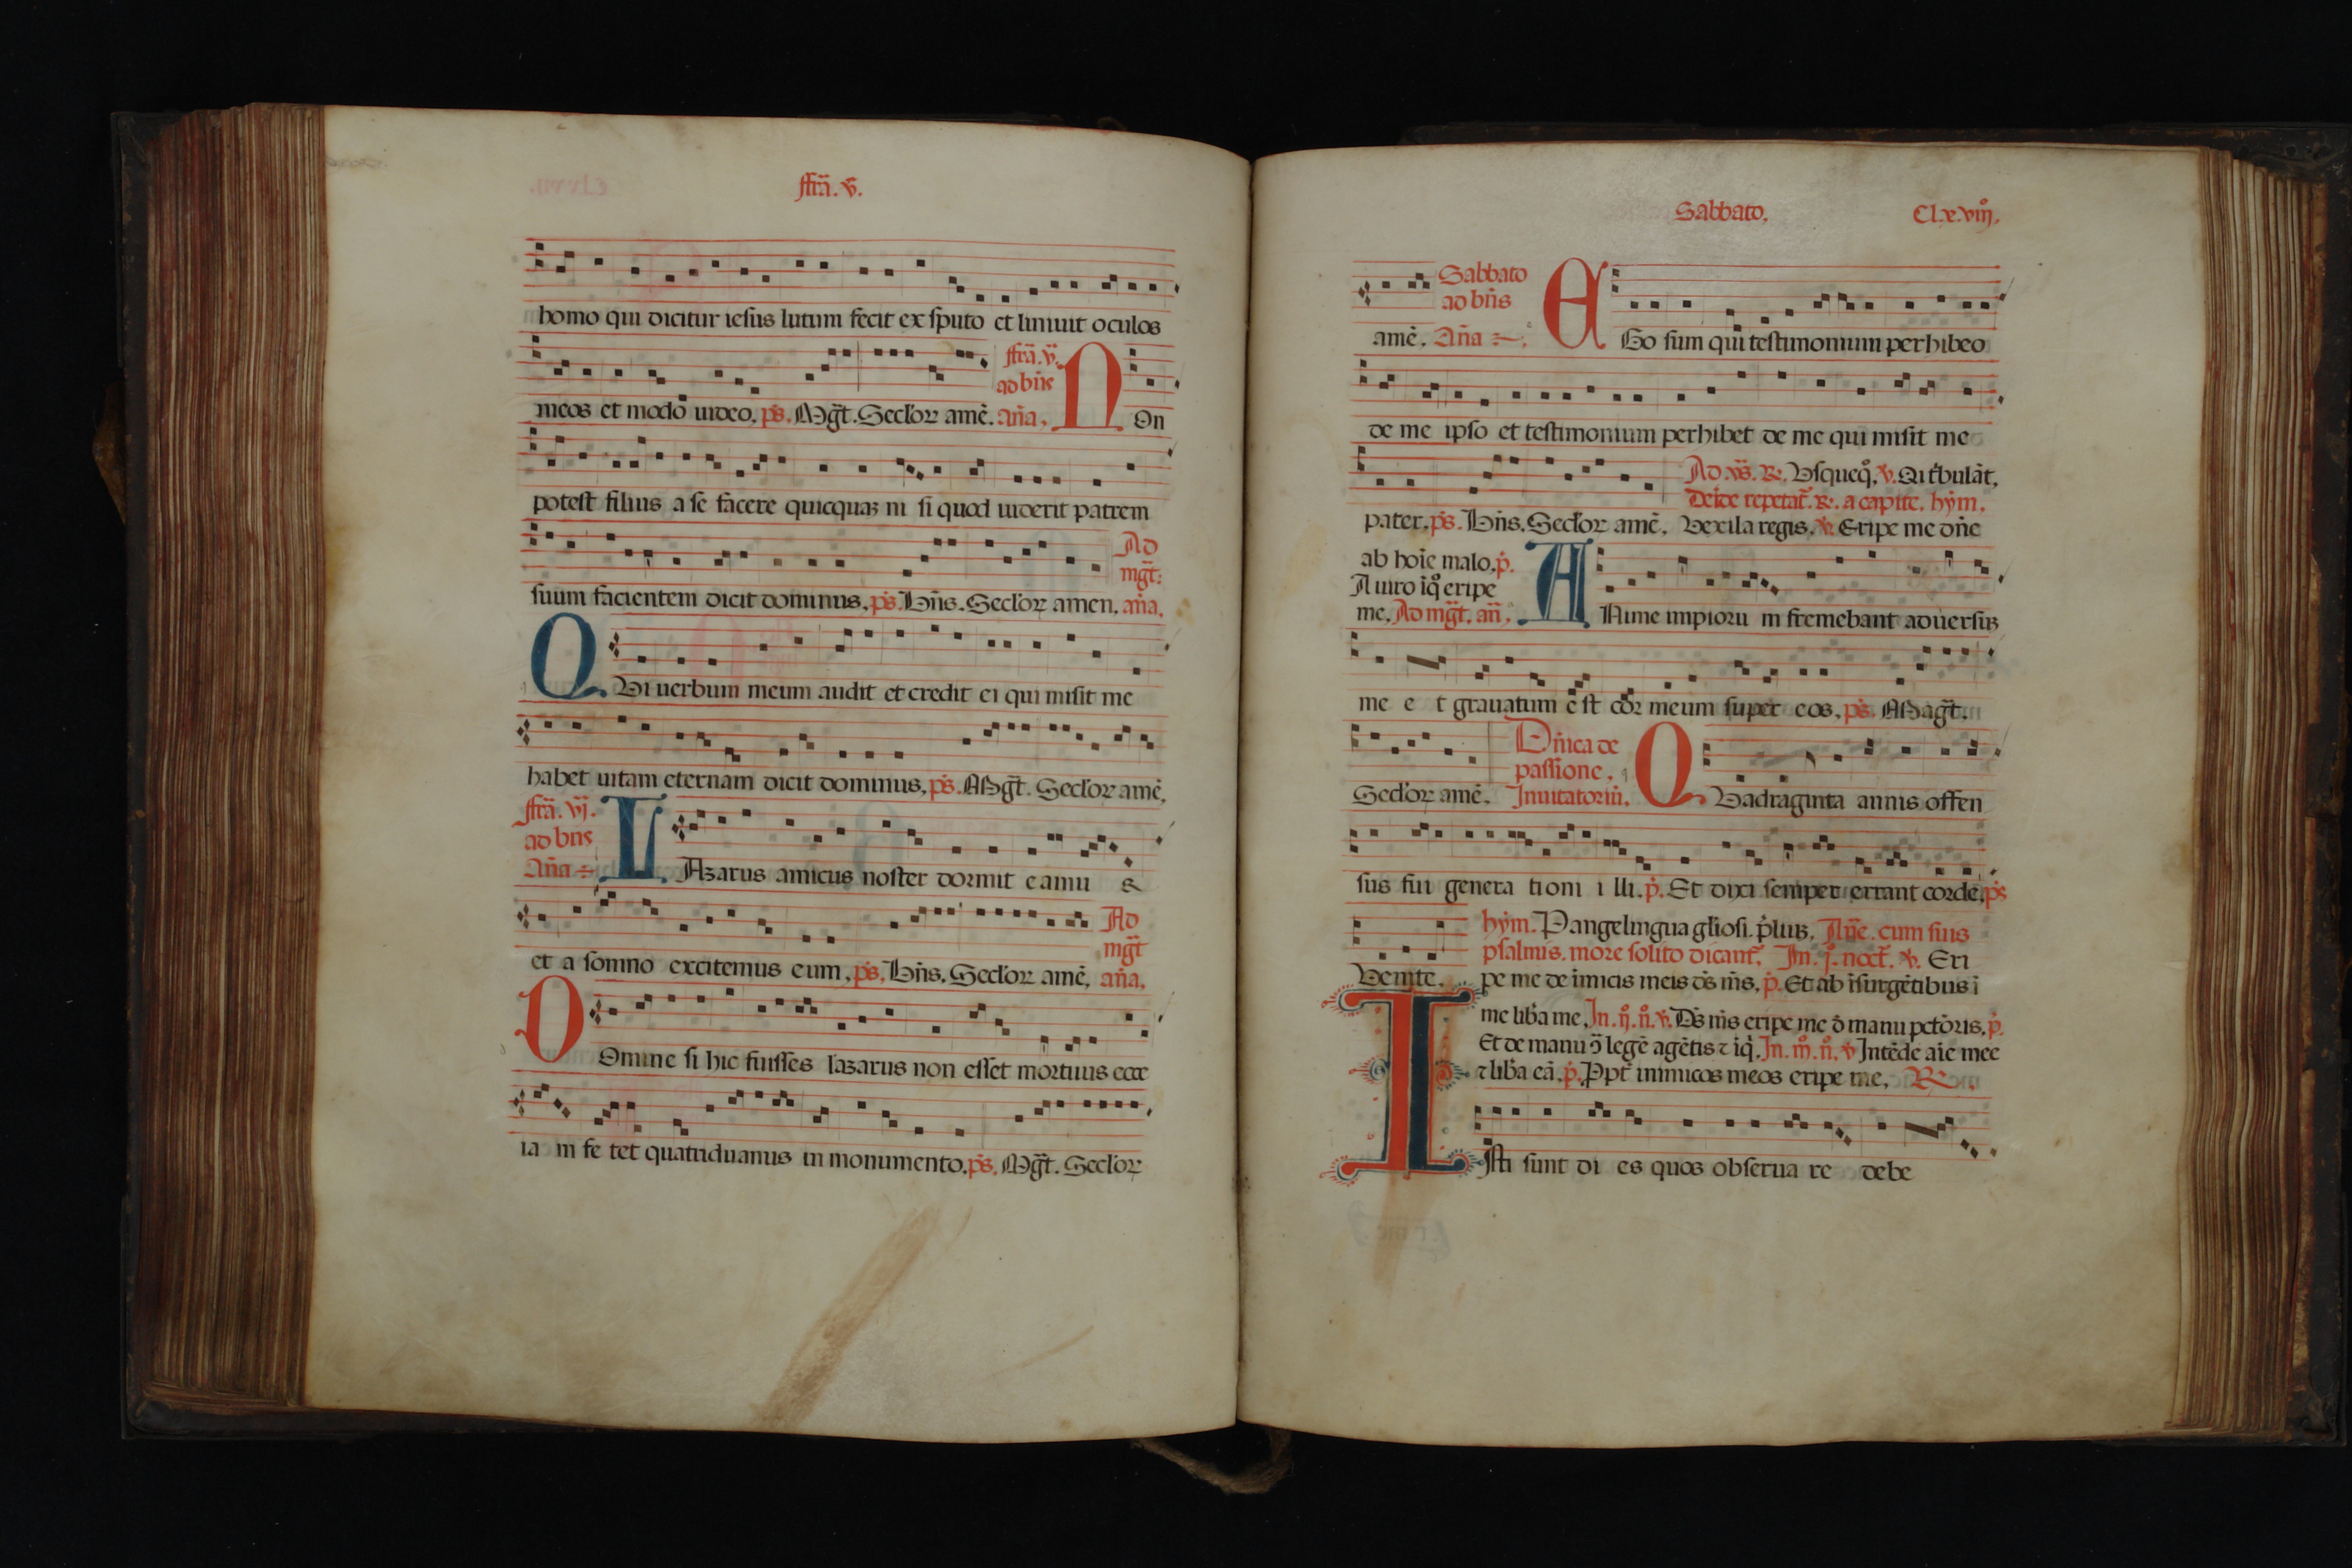 ffrã. v̄.
homo qui dicitur iesus lutum fecit ex sputo et liniuit oculos
meos et modo uideo. ps̄. Mg̃t. Seclor amē. ffrã. v̄. ad bñs añа. Non
potest filius a se facere quicquaꝫ ni si quod uiderit patrem
suum facientem dicit dominus. ps̄. Bñs. Seclor amen. Ad mg̃t. aña.
QVi uerbum meum audit et credit ei qui misit me
habet uitam eternam dicit dominus. ps̄. Mag̃t. Seclor amē.
ffrã. vj. ad bñs Aña LAzarus amicus noster dormit eamu s
et a somno excitemus eum. ps̄. Bñs. Seclor amē. Ad mg̃t aña.
DOmine si hic fuisses lazarus non esset mortuus ecce
ia m fe tet quatriduanus in monumento. ps̄. Mg̃t. Seclor
Sabbato. Cl.x.viij.
amē. Sabbato ad bñs Aña EGo sum qui testimonium perhibeo
de me ipso et testimonium perhibet de me qui misit me
pater. ps̄. Bñs. Seclor amē.
Ad vs̄. ℟. Vsqueq̊. ℣. Qui t̃bulãt.
Deide repetat̃. ℟. a capite. hym.
Vexila regis. ℣. Eripe me dñe
ab hoīe malo. p̄.
A uiro iq̊ eripe
me. Ad mg̃t. añ. ANime impioru m fremebant aduersus
me e t grauatum e st cor meum super eos. ps̄. Mag̃t.
Seclor amē. Dñica de passione. Inuitatoriū. QVadraginta annis offen
sus fui genera tioni i lli. p̄. Et dixi semper errant corde. ps̄
Venite.
hym. Pangelingua gl̃iosi. p̃lius. Añe. cum suis
psalmis. more solito dicant̃. In. j̊. noct̃. ℣. Eri
pe me de inimicis meis ds̄ ms̄. p̄. Et ab ĩsurgẽtibus ĩ
me lib̃a me. In. ij̊. n̊. ℣. Ds̄ ms̄ eripe me d̄ manu pctõris. p̄.
Et de manu ɔ̃ legē agẽtis ⁊ iq̃. In. iij̊. n̊. ℣ Intēde aīe mee
⁊ lib̃a eã. p̄. Ppt̃ inimicos meos eripe me. ℟.
ISti sunt di es quos obserua re debe